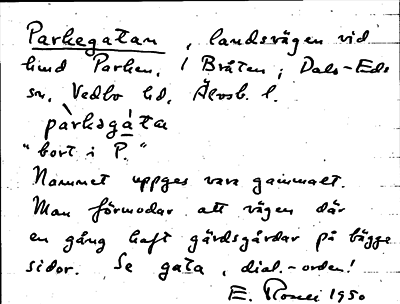 Parkegatan, landsvägen vid
hmd Parken, i Bråten, Dals-Eds
sn, Vedbo hd, Älvsb. l.
parkəgàta
"bort i P."
Namnet uppges vara gammalt.
Man förmodar att vägen där
en gång haft gärdsgårdar på bägge
sidor. Se gata, dial.-orden!
E. 1950